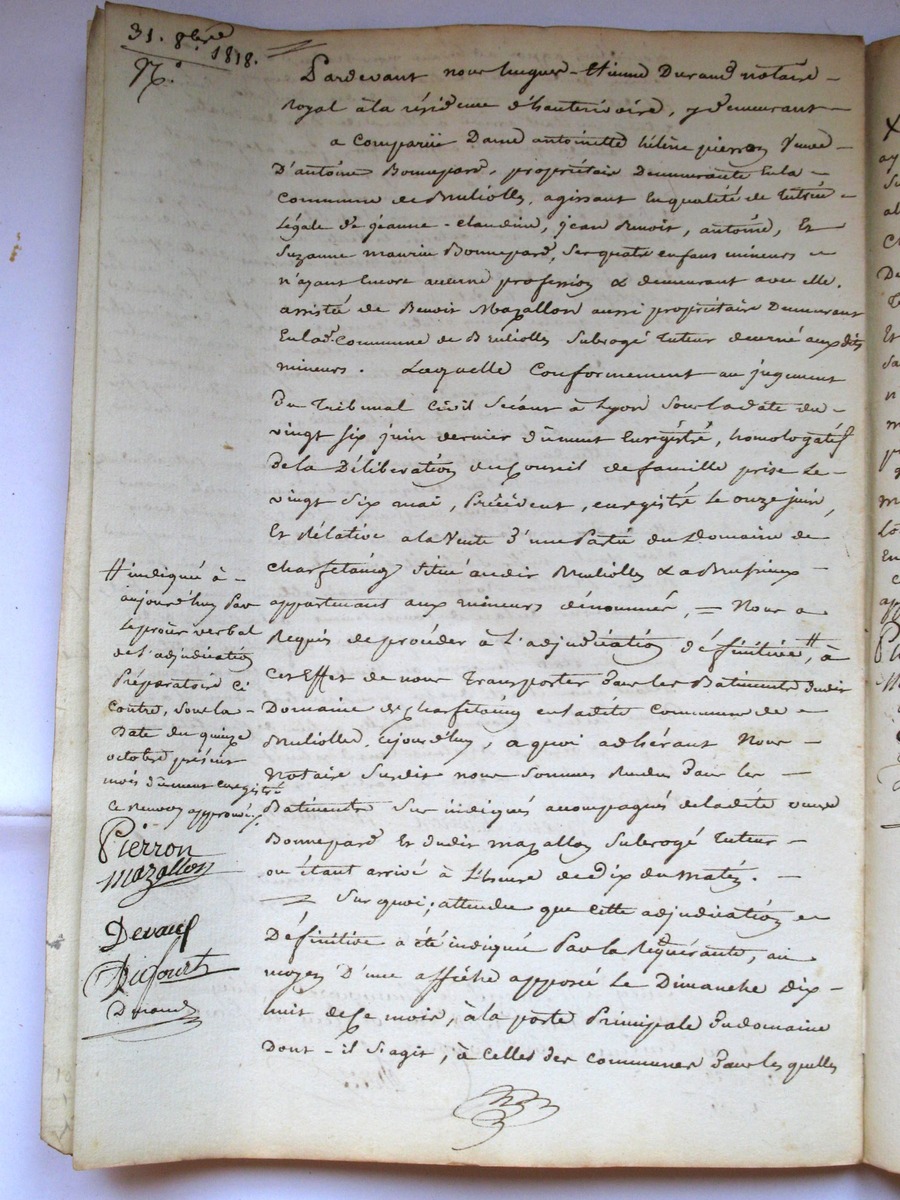 31. 8bre 1818.
N.°
Pardevant nous hugues-Etienne Durand notaire
royal à la résidence d'hauterivoire, y demeurant
a comparüe Dame antoinette hélène pierron Veuve
D'antoine Bonnepard, propriétaire Demeurante En la
Commune de Brulliolles, agissant En qualité de tutrice
Légale de jeanne-claudine, jean Benoit, antoine, Et
Suzanne maurice Bonnepard, Ses quatre enfans mineurs
n'ayant Encore aucune profession & demeurant avec elle.
assistée de Benoit Mazallon aussi propriétaire Demeurant
En lad.e Commune de Brulliolles Subrogé tuteur decerné auxdits
mineurs. Laquelle Conformement au jugement
du Tribunal Civil Séant à Lyon Sous la date du
vingt six juin dernier dûment Enrégistré, homologatif
de la Déliberation du Conseil de famille prise Le
vingt Six mai, Précédent, enregistré Le onze juin,
Et Rélative a la Vente d'une Partie du Domaine de
Charfetaing situé audit Brulliolles & a Brussieux
appartenant aux mineurs dénommés, = Nous a
Requis de procéder à L'adjudication définitive #, à
Cet Effet de nous Transporter dans les Batiments dudit
Domaine de Charfetaing en ladite Commune de
Brulliolles, cejourd'huy, a quoi adhérant Nous
Notaire Susdit nous Sommes Rendus dans les
Batiments Sus indiqués accompagnés de ladite veuve
Bonnepard Et dudit mazallon Subrogé tuteur
ou étant arrivé à L'heure de dix du matin.
= Sur quoi; attendu que Cette adjudication
Définitive a été indiquée Par la Requérante, au
moyen D'une affiche apposée Le Dimanche Dix-
huit de Ce mois, à la porte Principale du domaine
Dont-il S'agit, à Celles des communes dans les quelles
# indiquée à
aujourd'huy Par
Le procès verbal
de L'adjudication
Préparatoire Ci
Contre, Sous la
Date du quinze
octobre présent
mois dûment enregistré
Ce Renvoy approuvé
Pierron
Mazallon
Durand